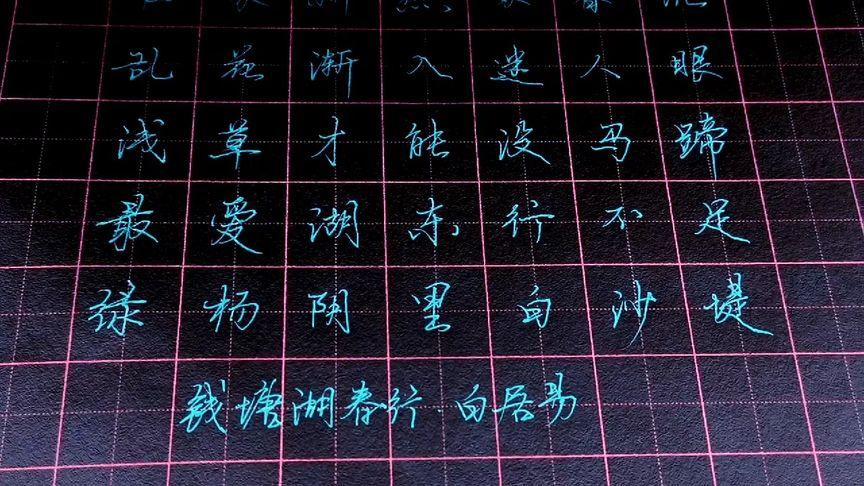 乱花渐入迷人眼
浅草才能没马蹄
最爱湖东行不足
绿杨阴里白沙堤
钱塘湖春行·白居易